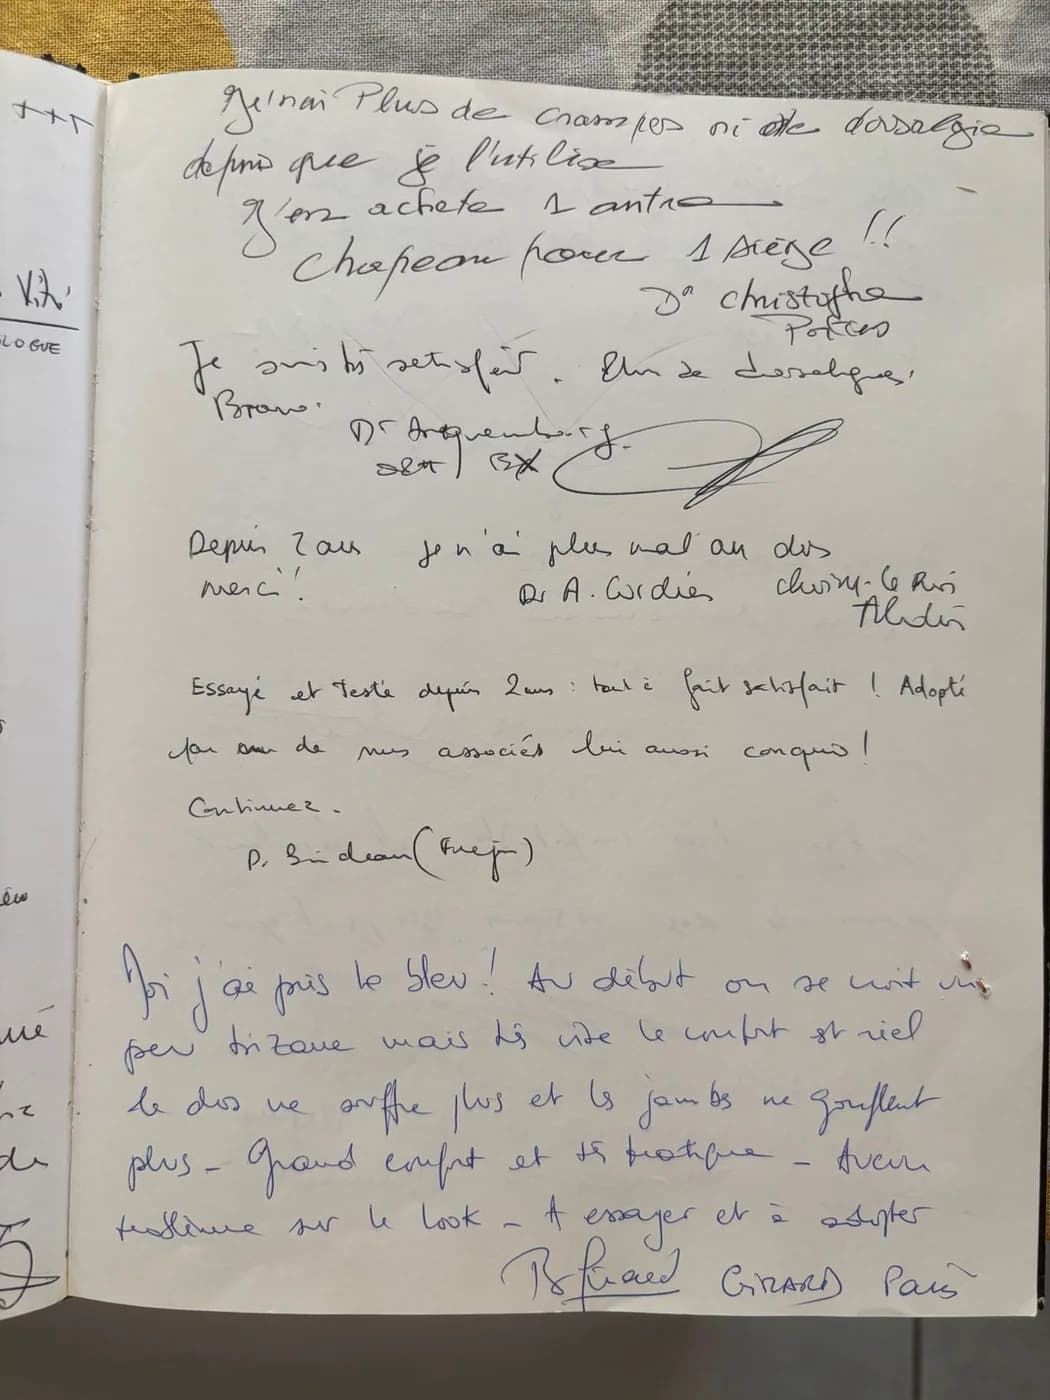 +++
Je n'ai Plus de crampes ni de dorsalgie
depuis que je l'utilise
J'en achete 1 autre
Chapeau pour 1 siège !!
Dr Christophe
Je suis très satisfait. Plus de dorsalgies.
Bravo.
Dr Arquembourg
Depuis 2 ans je n'ai plus mal au dos
merci! Dr A. Cordier Choisy-le Roi
Essayé et Testé depuis 2 ans : tout à fait satisfait ! Adopté
par un de mes associés lui aussi conquis !
Continuez.
Moi j'ai pris le bleu ! Au début on se croit un
peu bizarre mais très vite le confort est réel
le dos ne souffre plus et les jambes ne gonflent
plus - Grand confort et très pratique - Aucun
problème sur le look - A essayer et à adopter
GIRARD Paris
LOGUE